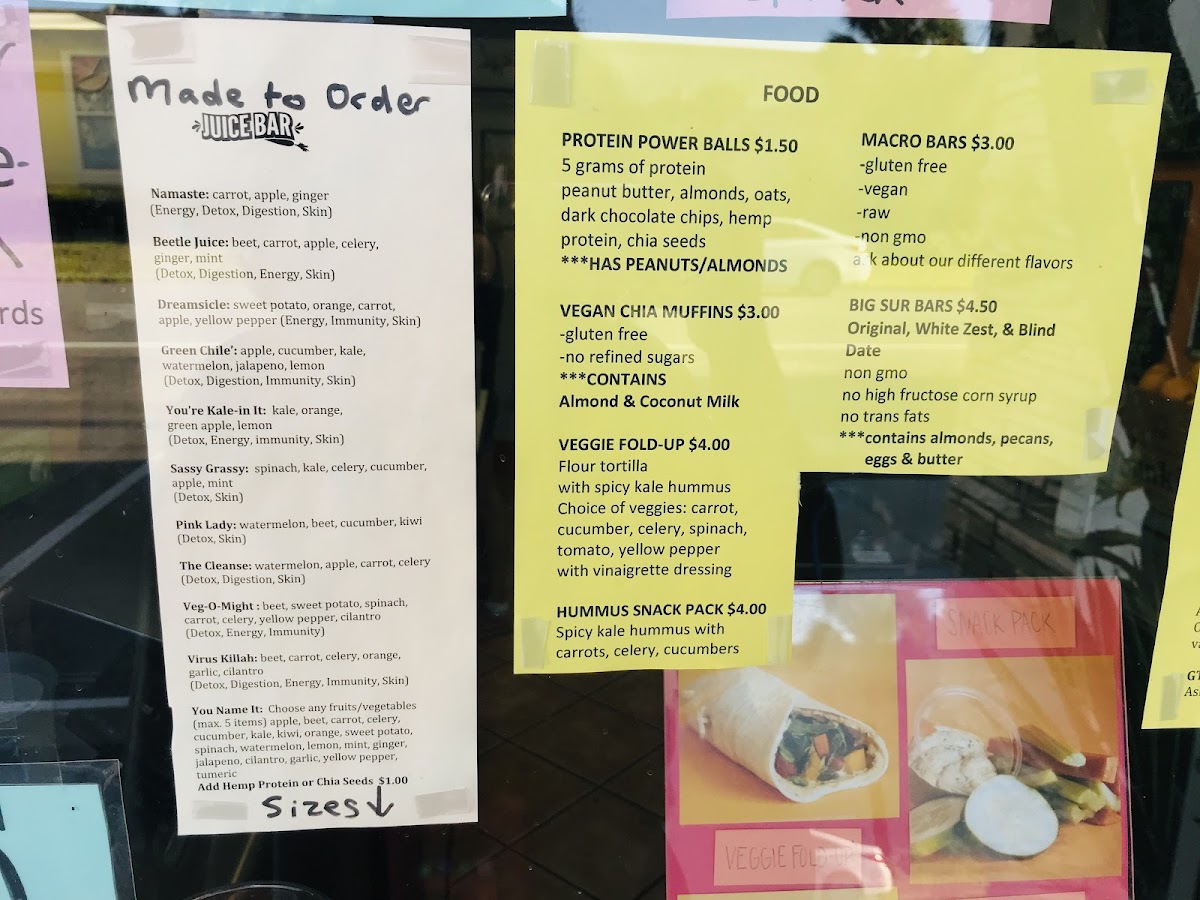 Made to Order
JUICE BAR
Namaste: carrot, apple, ginger
(Energy, Detox, Digestion, Skin)
Beetle Juice: beet, carrot, apple, celery,
ginger, mint
(Detox, Digestion, Energy, Skin)
Dreamsicle: sweet potato, orange, carrot,
apple, yellow pepper (Energy, Immunity, Skin)
Green Chile': apple, cucumber, kale,
watermelon, jalapeno, lemon
(Detox, Digestion, Immunity, Skin)
You're Kale-in It: kale, orange,
green apple, lemon
(Detox, Energy, immunity, Skin)
Sassy Grassy: spinach, kale, celery, cucumber,
apple, mint
(Detox, Skin)
Pink Lady: watermelon, beet, cucumber, kiwi
(Detox, Skin)
The Cleanse: watermelon, apple, carrot, celery
(Detox, Digestion, Skin)
Veg-O-Might : beet, sweet potato, spinach,
carrot, celery, yellow pepper, cilantro
(Detox, Energy, Immunity)
Virus Killah: beet, carrot, celery, orange,
garlic, cilantro
(Detox, Digestion, Energy, Immunity, Skin)
You Name It: Choose any fruits/vegetables
(max. 5 items) apple, beet, carrot, celery,
cucumber, kale, kiwi, orange, sweet potato,
spinach, watermelon, lemon, mint, ginger,
jalapeno, cilantro, garlic, yellow pepper,
tumeric
Add Hemp Protein or Chia Seeds $1.00
Sizes↓
FOOD
PROTEIN POWER BALLS $1.50
5 grams of protein
peanut butter, almonds, oats,
dark chocolate chips, hemp
protein, chia seeds
***HAS PEANUTS/ALMONDS
VEGAN CHIA MUFFINS $3.00
-gluten free
-no refined sugars
***CONTAINS
Almond & Coconut Milk
VEGGIE FOLD-UP $4.00
Flour tortilla
with spicy kale hummus
Choice of veggies: carrot,
cucumber, celery, spinach,
tomato, yellow pepper
with vinaigrette dressing
HUMMUS SNACK PACK $4.00
Spicy kale hummus with
carrots, celery, cucumbers
MACRO BARS $3.00
-gluten free
-vegan
-raw
-non gmo
ask about our different flavors
BIG SUR BARS $4.50
Original, White Zest, & Blind
Date
non gmo
no high fructose corn syrup
no trans fats
***contains almonds, pecans,
eggs & butter
SNACK PACK
VEGGIE FOLD-UP
rds